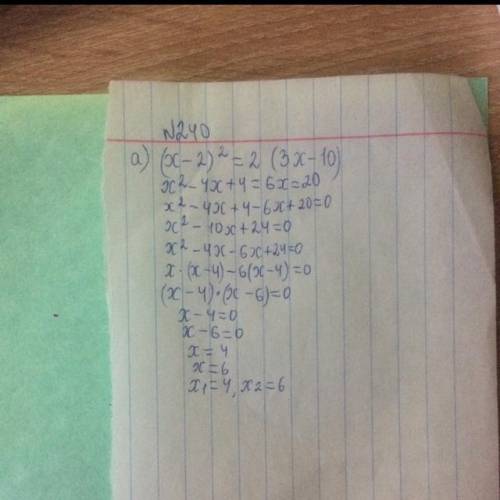 №240
а) (x-2)² = 2 (3x-10)
x²-4x+4=6x=20
x²-4x+4-6x+20=0
x²-10x+24=0
x²-4x-6x+24=0
x·(x-4)-6(x-4)=0
(x-4)·(x-6)=0
x-4=0
x-6=0
x=4
x=6
x₁=4, x₂=6